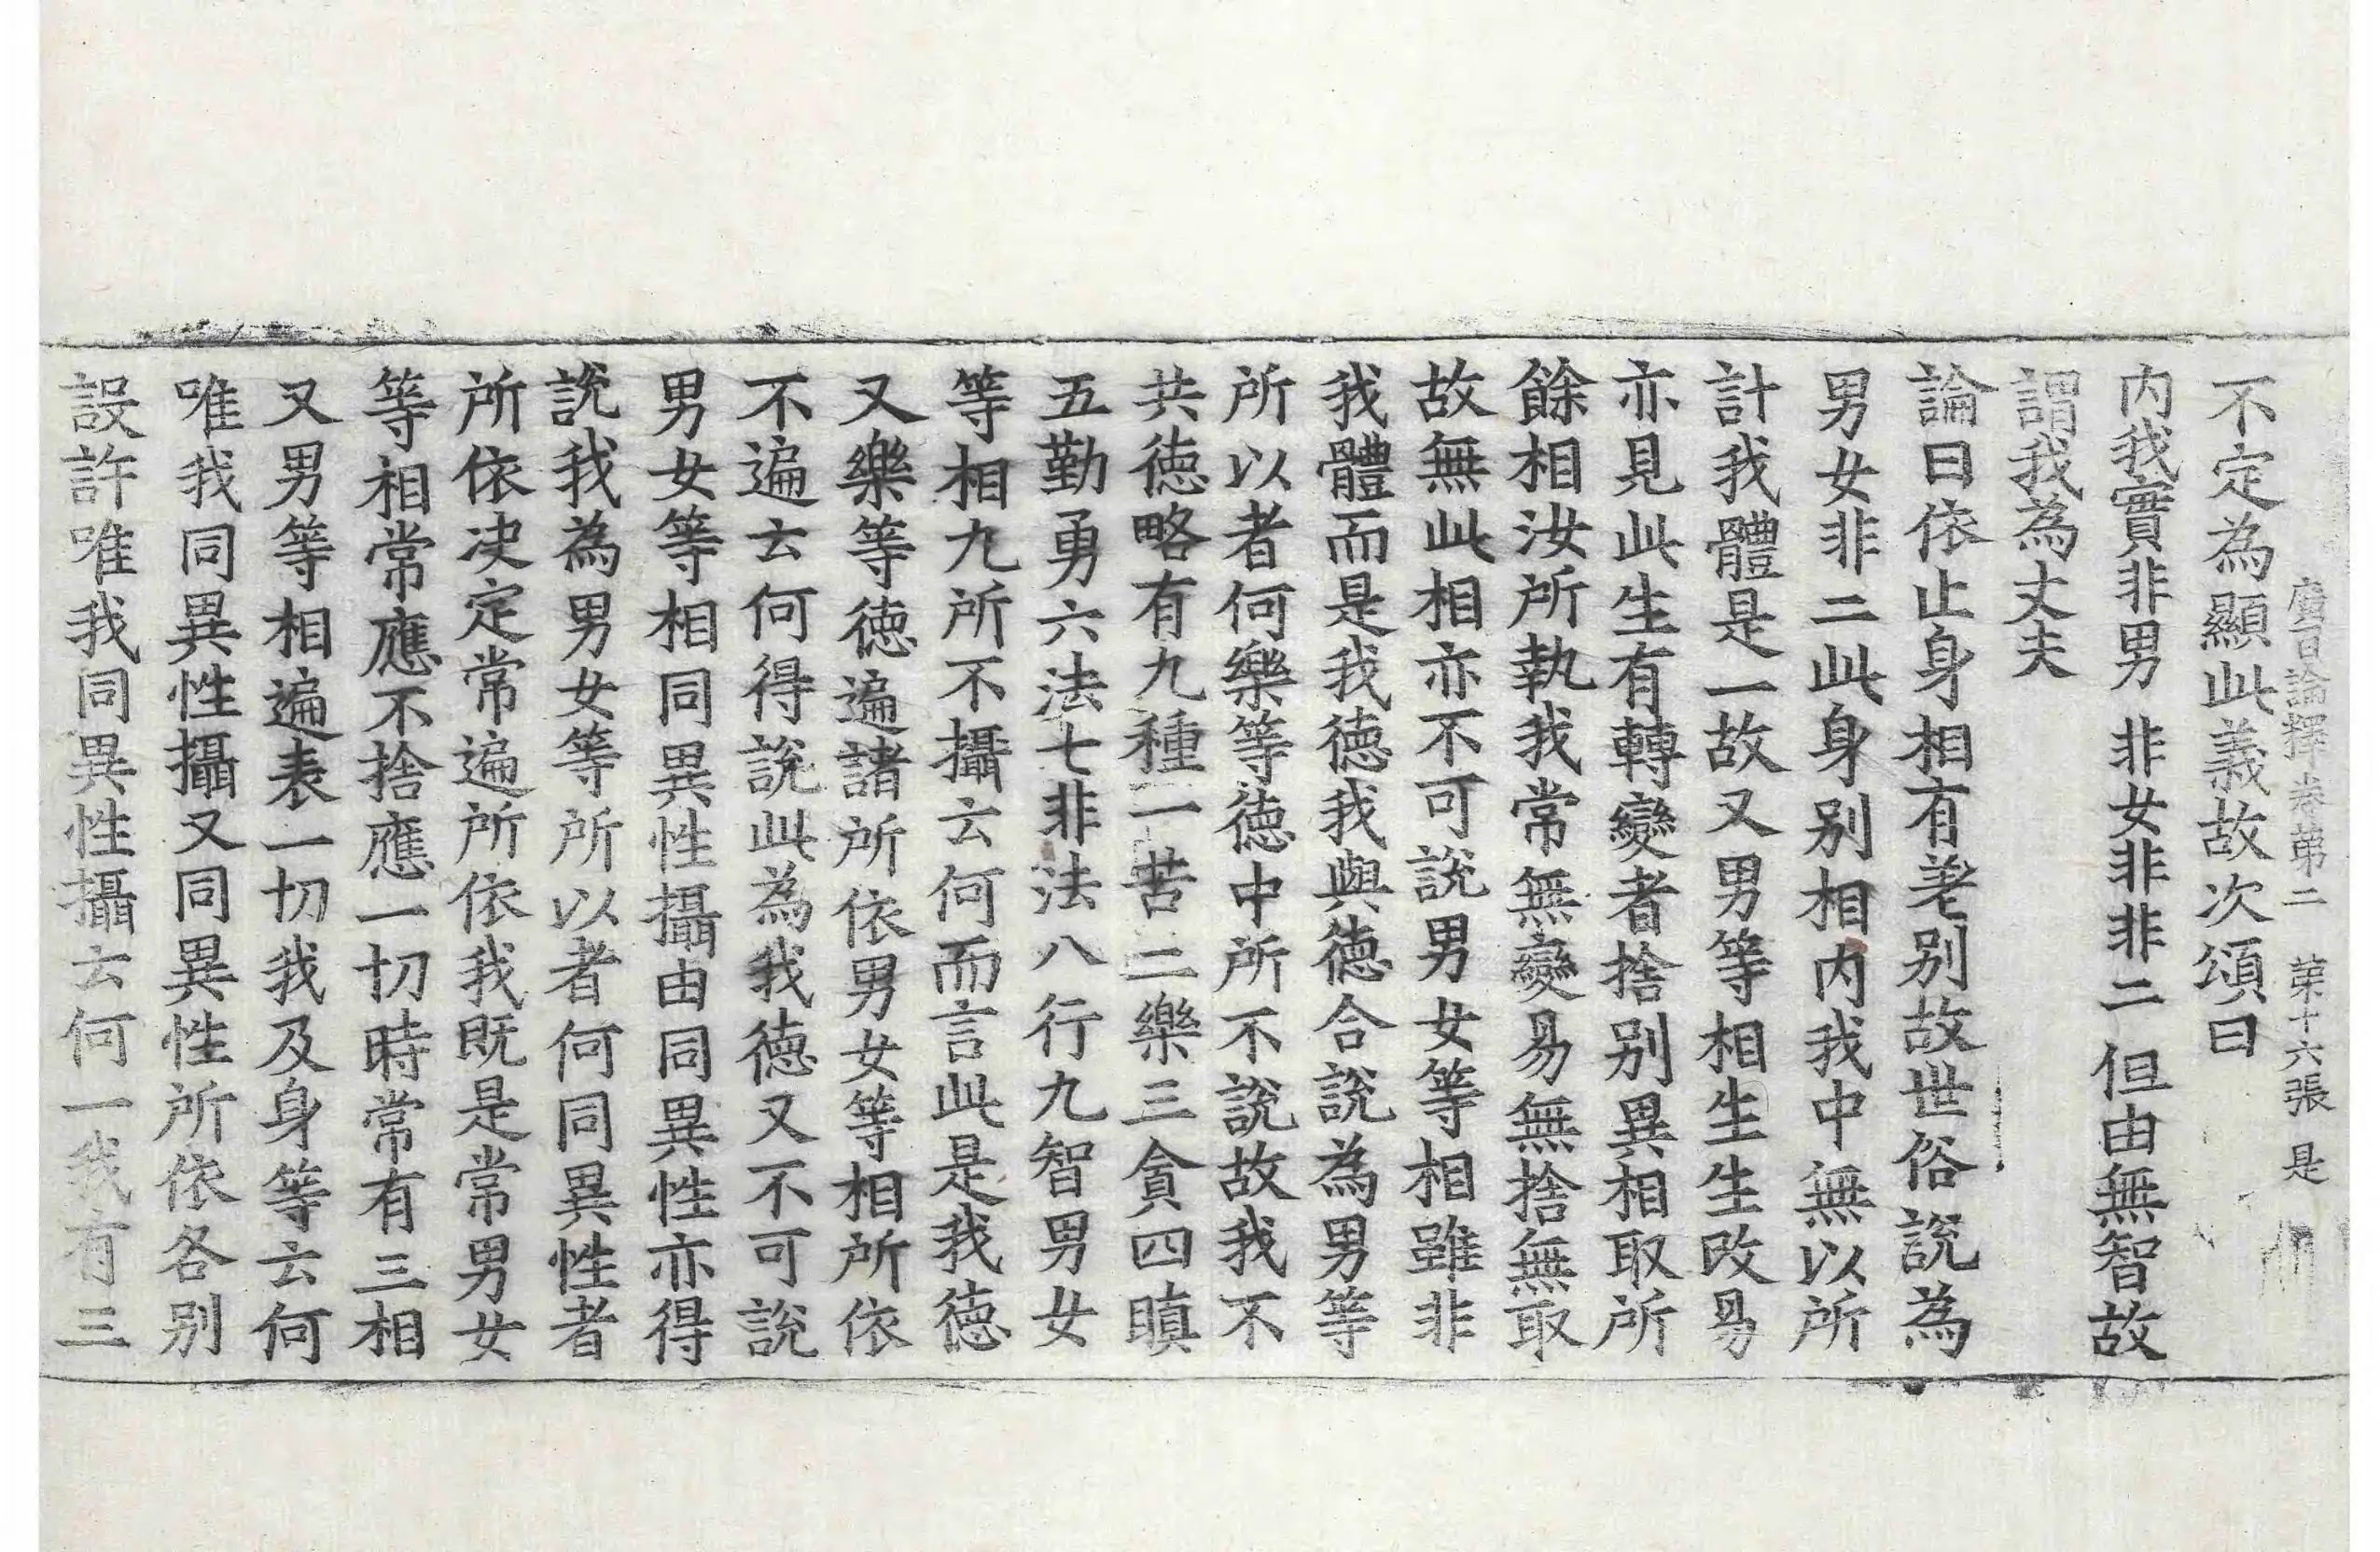 廣百論釋卷第二 第十六張 是
不定為顯此義故次頌曰
内我實非男 非女非非二 但由無智故
謂我為丈夫
論曰依止身相有差別故世俗說為
男女非二此身別相内我中無以所
計我體是一故又男等相生生改易
亦見此生有轉變者捨別異相取所
餘相汝所執我常無變易無捨無取
故無此相亦不可說男女等相雖非
我體而是我德我與德合說為男等
所以者何樂等德中所不說故我不
共德略有九種一苦二樂三貪四瞋
五勤勇六法七非法八行九智男女
等相九所不攝云何而言此是我德
又樂等德遍諸所依男女等相所依
不遍云何得說此為我德又不可說
男女等相同異性攝由同異性亦得
說我為男女等所以者何同異性者
所依決定常遍所依我既是常男女
等相常應不捨應一切時常有三相
又男等相遍表一切我及身等云何
唯我同異性攝又同異性所依各別
設許唯我同異性攝云何一我有三